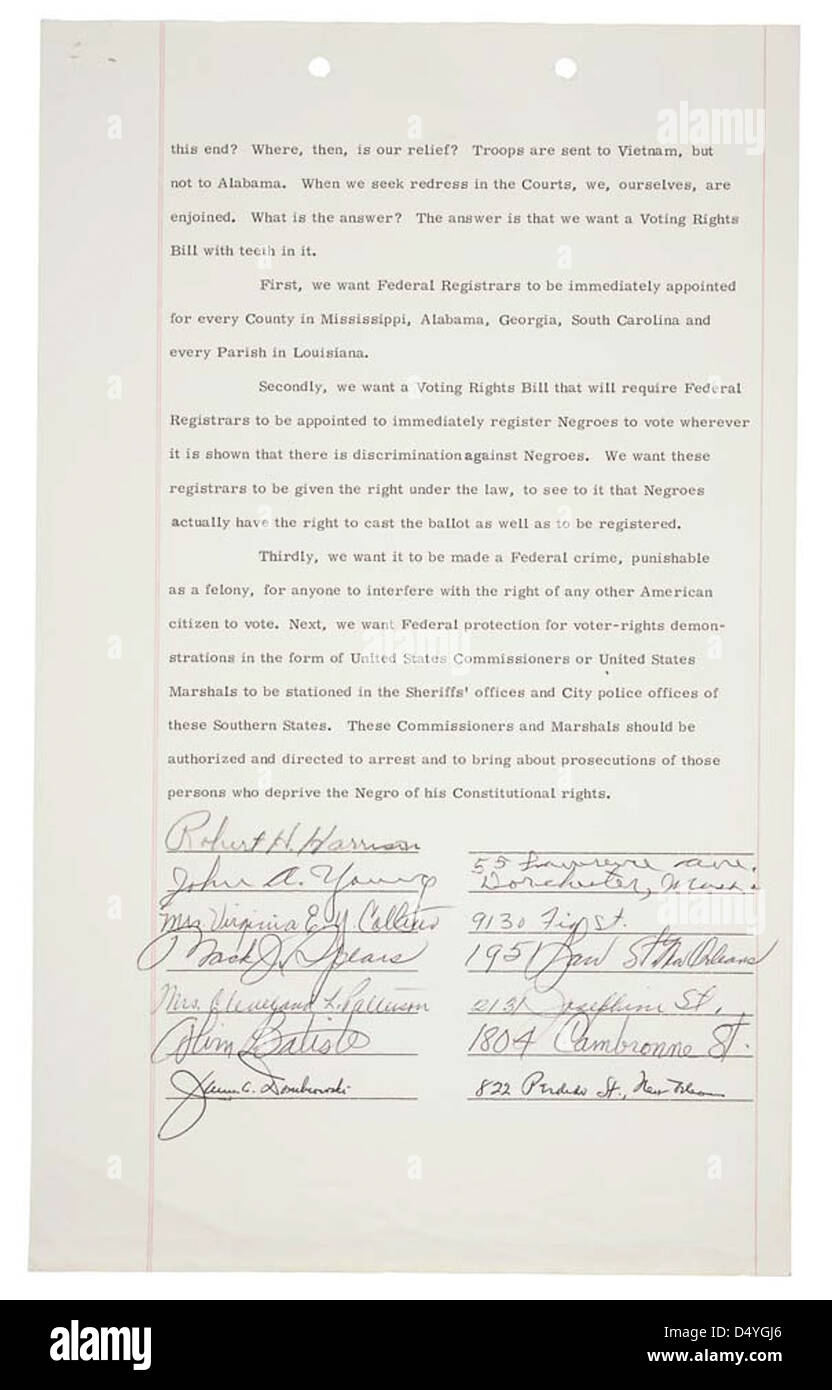 this end? Where, then, is our relief? Troops are sent to Vietnam, but
not to Alabama. When we seek redress in the Courts, we, ourselves, are
enjoined. What is the answer? The answer is that we want a Voting Rights
Bill with teeth in it.
First, we want Federal Registrars to be immediately appointed
for every County in Mississippi, Alabama, Georgia, South Carolina and
every Parish in Louisiana.
Secondly, we want a Voting Rights Bill that will require Federal
Registrars to be appointed to immediately register Negroes to vote wherever
it is shown that there is discrimination against Negroes. We want these
registrars to be given the right under the law, to see to it that Negroes
actually have the right to cast the ballot as well as to be registered.
Thirdly, we want it to be made a Federal crime, punishable
as a felony, for anyone to interfere with the right of any other American
citizen to vote. Next, we want Federal protection for voter-rights demon-
strations in the form of United States Commissioners or United States
Marshals to be stationed in the Sheriffs' offices and City police offices of
these Southern States. These Commissioners and Marshals should be
authorized and directed to arrest and to bring about prosecutions of those
persons who deprive the Negro of his Constitutional rights.
Robert H. Harrison
55 ave.
John A. Young Dorchester, Mass.
Mrs Virginia E. Y. Collins 9130 Fig St.
Mack J. Spears 1951 Law St New Orleans
Mrs. Cleveland L. Patterson 2131 Josephine St.
Alvin Batiste 1804 Cambronne St.
James A. Dombrowski 822 Perdido St., New Orleans
alamy
Image ID: D4YGJ6
www.alamy.com